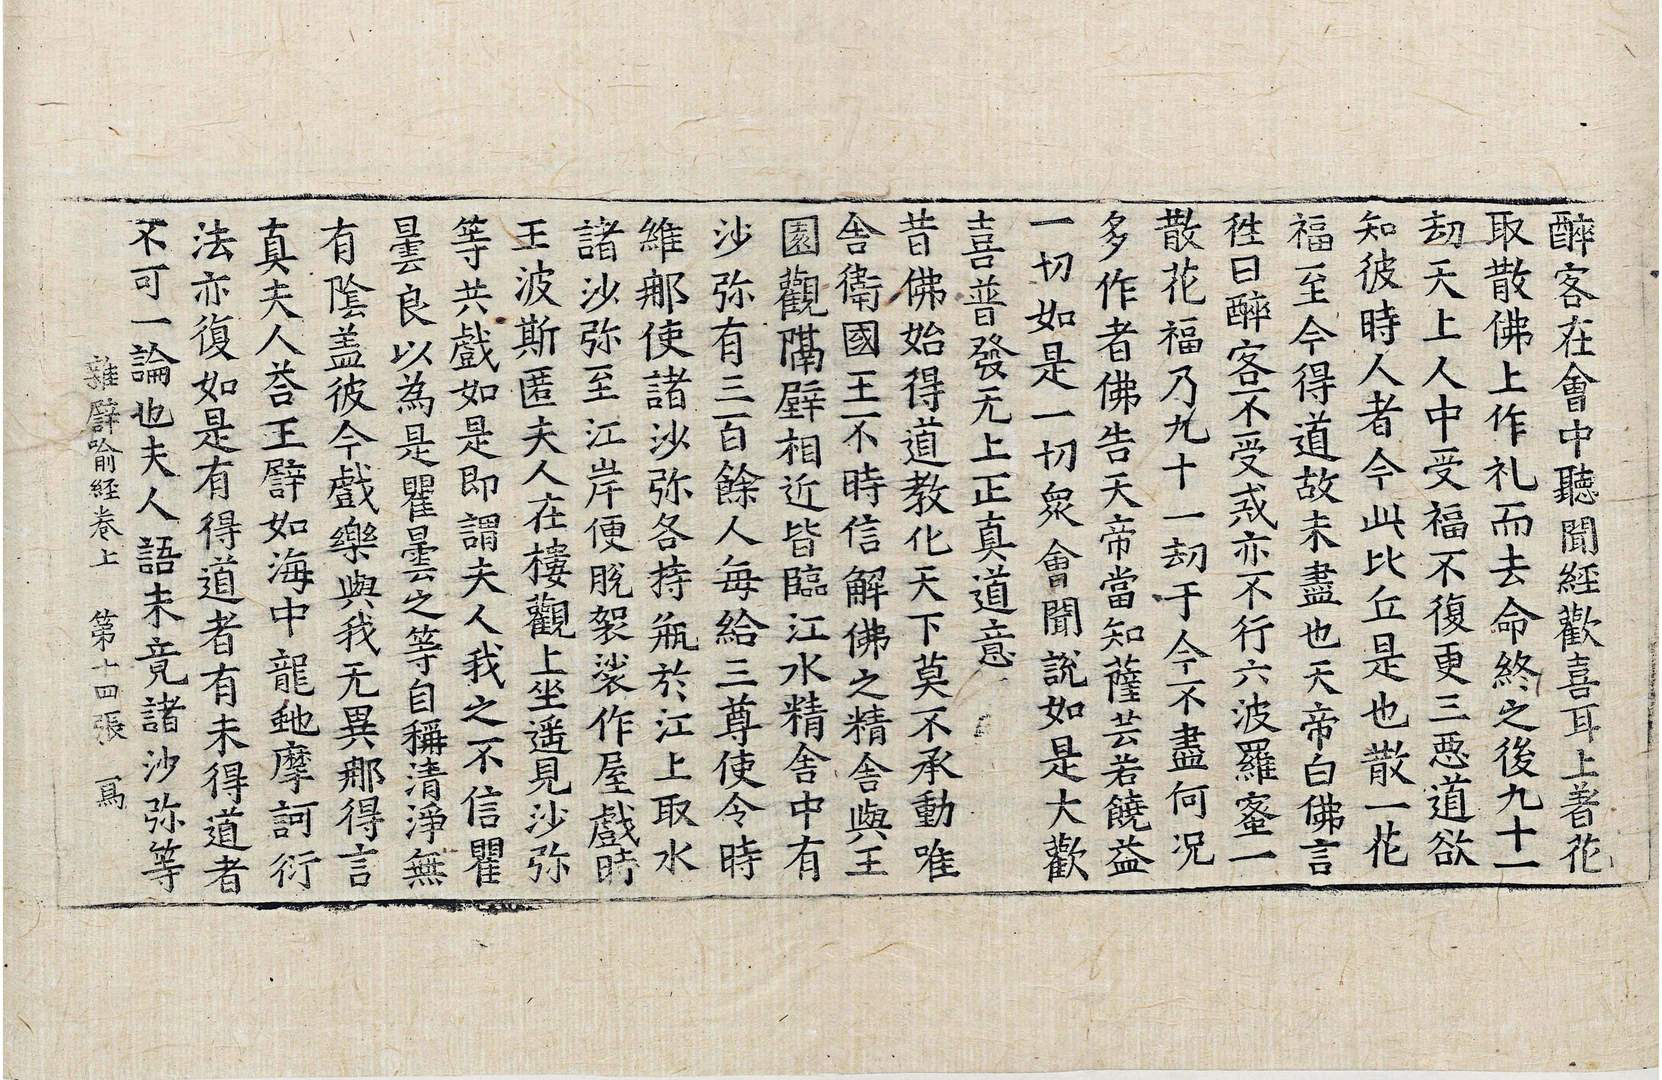 醉客在會中聽聞經歡喜耳上著花
取散佛上作礼而去命終之後九十一
劫天上人中受福不復更三惡道欲
知彼時人者今此比丘是也散一花
福至今得道故未盡也天帝白佛言
徃日醉客不受戒亦不行六波羅蜜一
散花福乃九十一劫于今不盡何况
多作者佛告天帝當知薩芸若饒益
一切如是一切衆會聞說如是大歡
喜普發无上正真道意
昔佛始得道教化天下莫不承動唯
舍衛國王不時信解佛之精舍與王
園觀隔壁相近皆臨江水精舍中有
沙弥有三百餘人每給三尊使令時
維那使諸沙弥各持瓶於江上取水
諸沙弥至江岸便脫袈裟作屋戲時
王波斯匿夫人在樓觀上坐遥見沙弥
等共戲如是即謂夫人我之不信瞿
曇良以為是瞿曇之等自稱清淨無
有陰盖彼今戲樂與我无異那得言
真夫人荅王譬如海中龍虵摩訶衍
法亦復如是有得道者有未得道者
不可一論也夫人語未竟諸沙弥等
雜譬喻經卷上 第十四張 寫